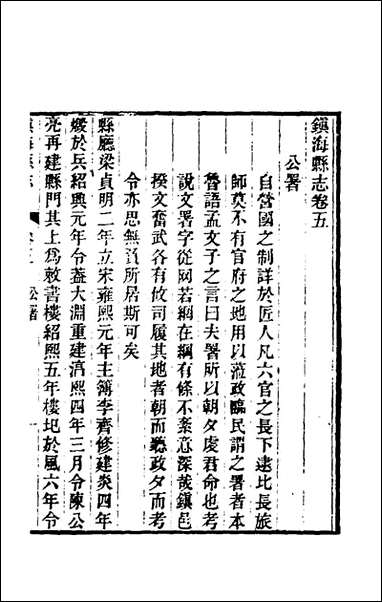 鎮海縣志卷五
公署
自營國之制詳於匠人凡六官之長下逮比長旅
師莫不有官府之地用以蒞政臨民謂之署者本
魯語孟文子之言曰夫署所以朝夕虔君命也考
說文署字从网若網在綱有條不紊意深哉鎮邑
揆文奮武各有攸司履其地者朝而聽政夕而考
令亦思無負所居斯可矣
縣廳梁貞明二年立宋雍熙元年主簿李齊修建炎四年
燬於兵紹興元年令蓋大淵重建淳熙四年三月令陳公
亮再建縣門其上爲敕書樓紹熙五年樓圮於風六年令